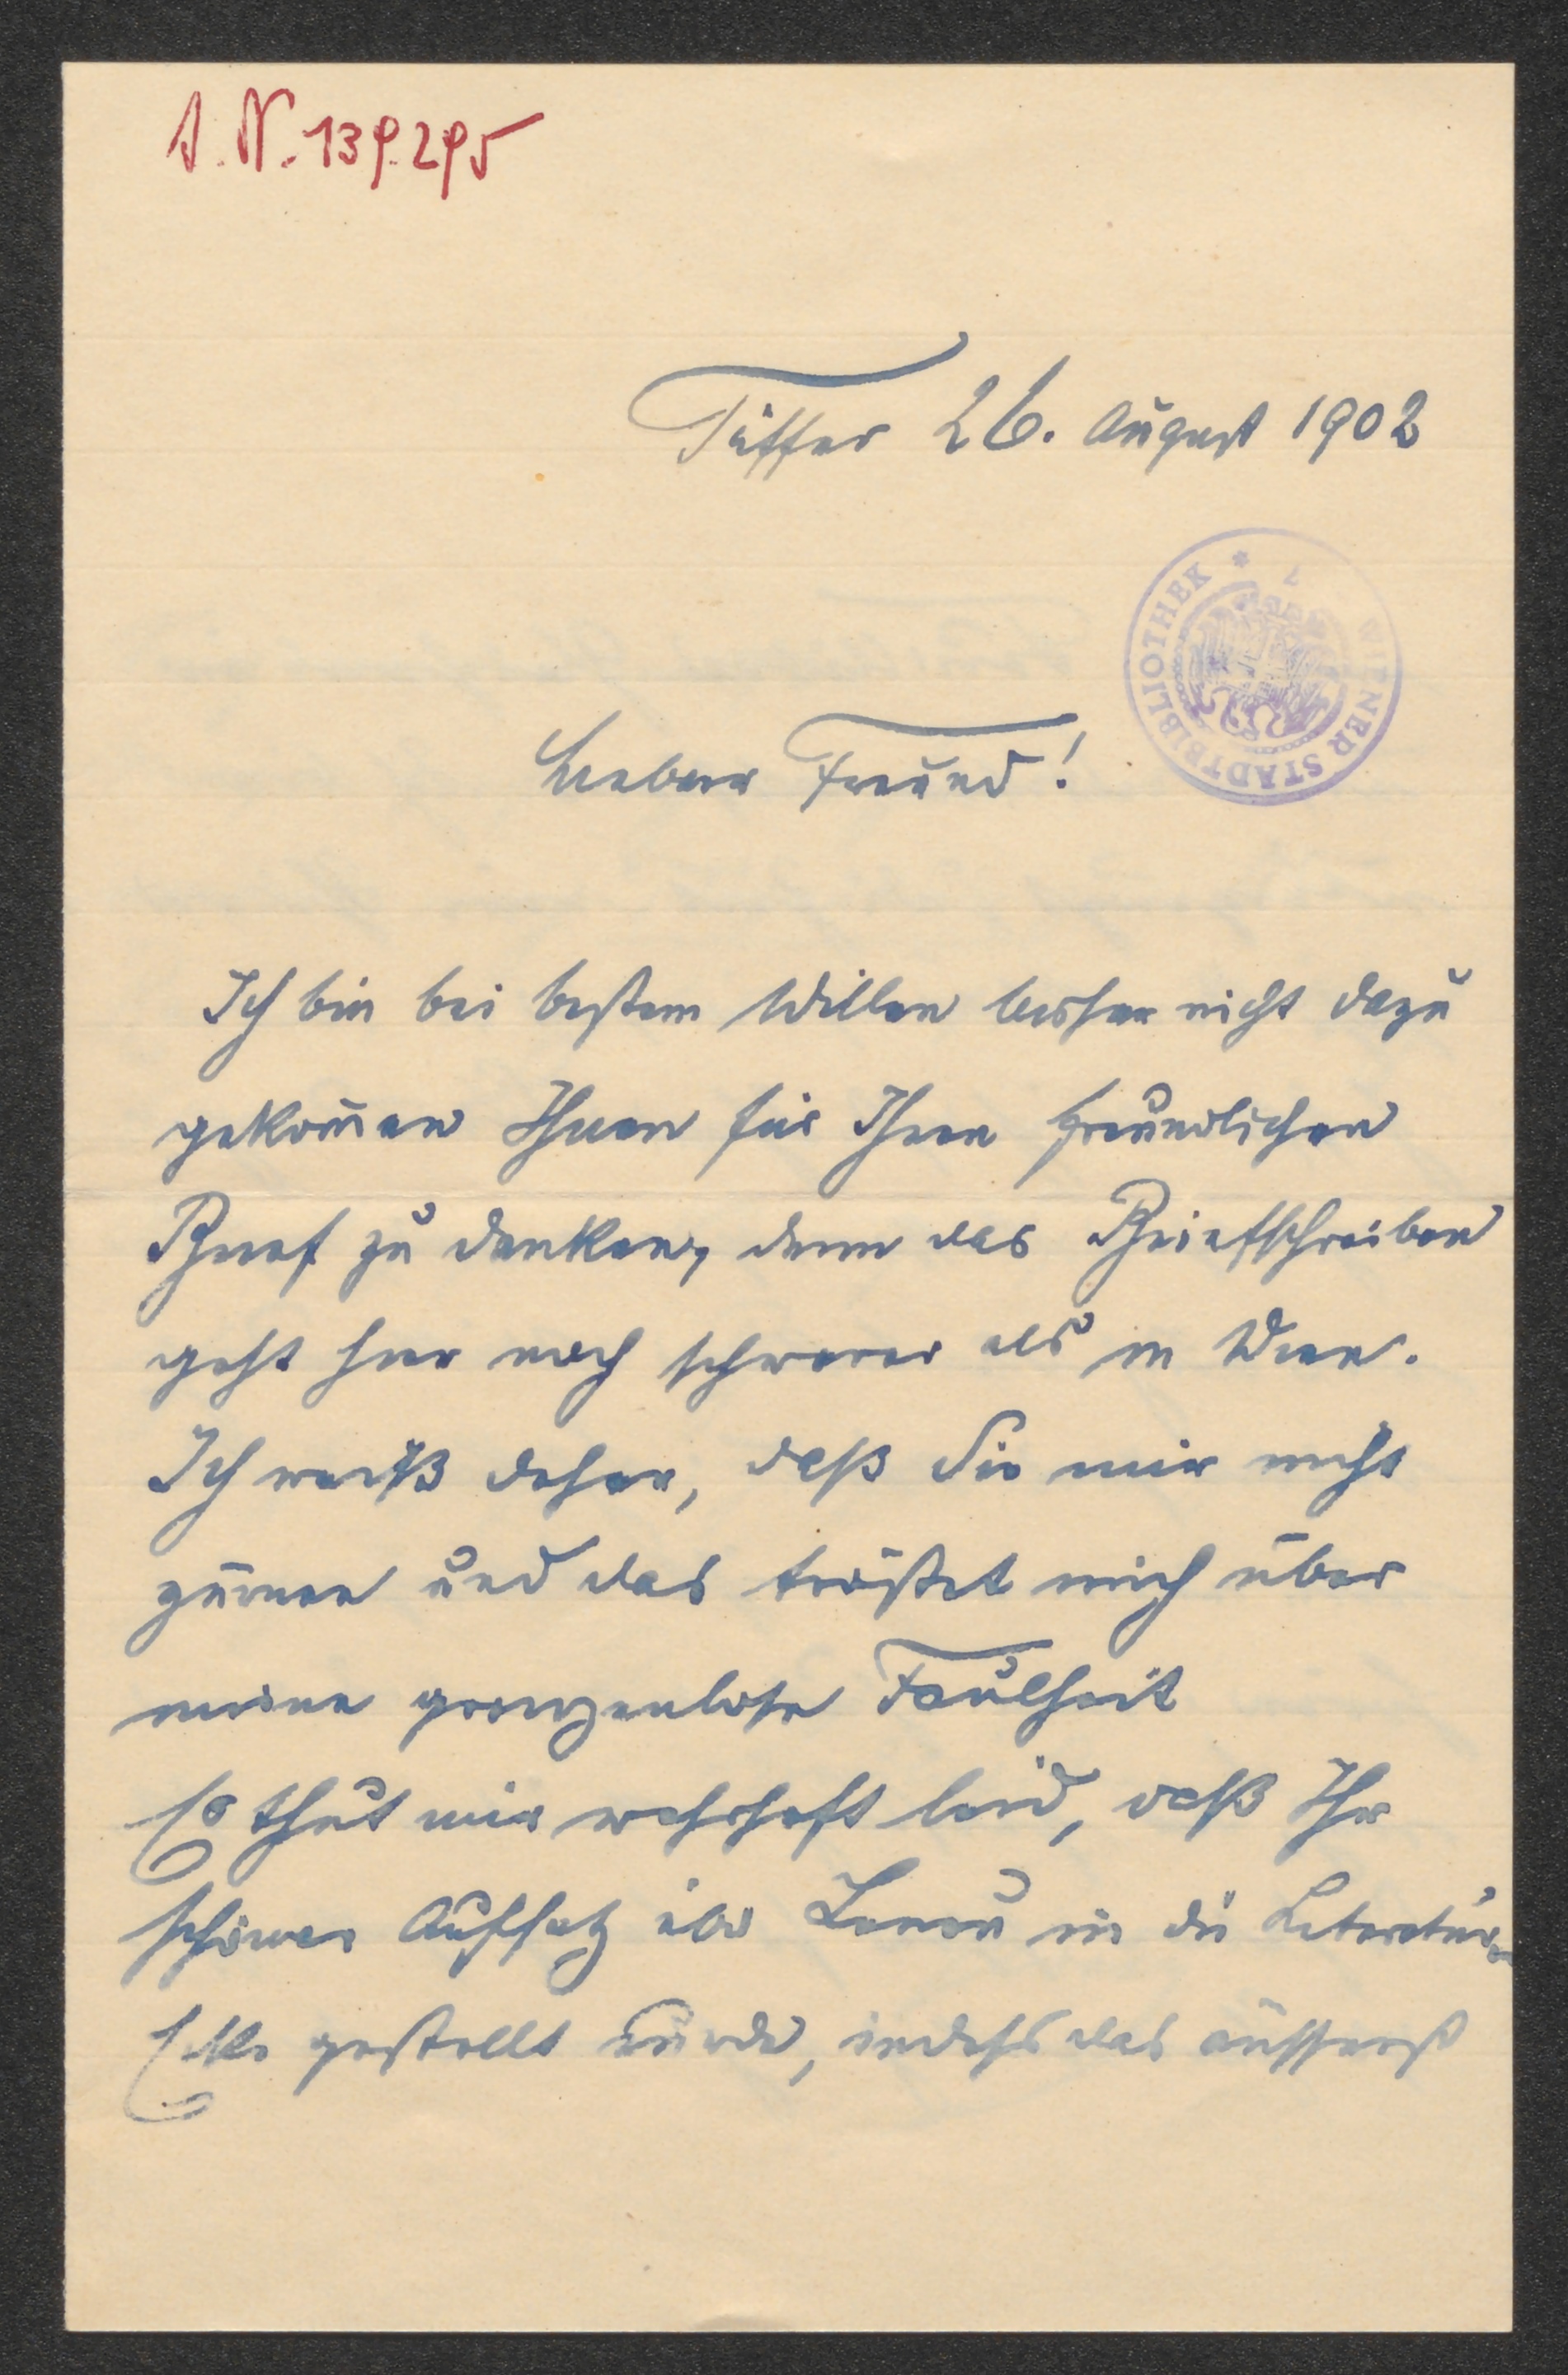 I. N. 139.295
Tüffer 26. August 1902
WIENER STADTBIBLIOTHEK
Lieber Freund!
Ich bin bei bestem Willen bisher nicht dazu
gekom̄en Ihnen für Ihren freundlichen
Brief zu danken, denn das Briefschreiben
geht hier noch schwerer als in Wien.
Ich weiß daher, daß Sie mir nicht
zürnen und das tröstet mich über
meine grenzenlose Faulheit
Es thut mir wahrhaft leid, daß Ihr
schöner Aufsatz über Lenau in die Literatur
gestellt wurde, indeß das äusserst